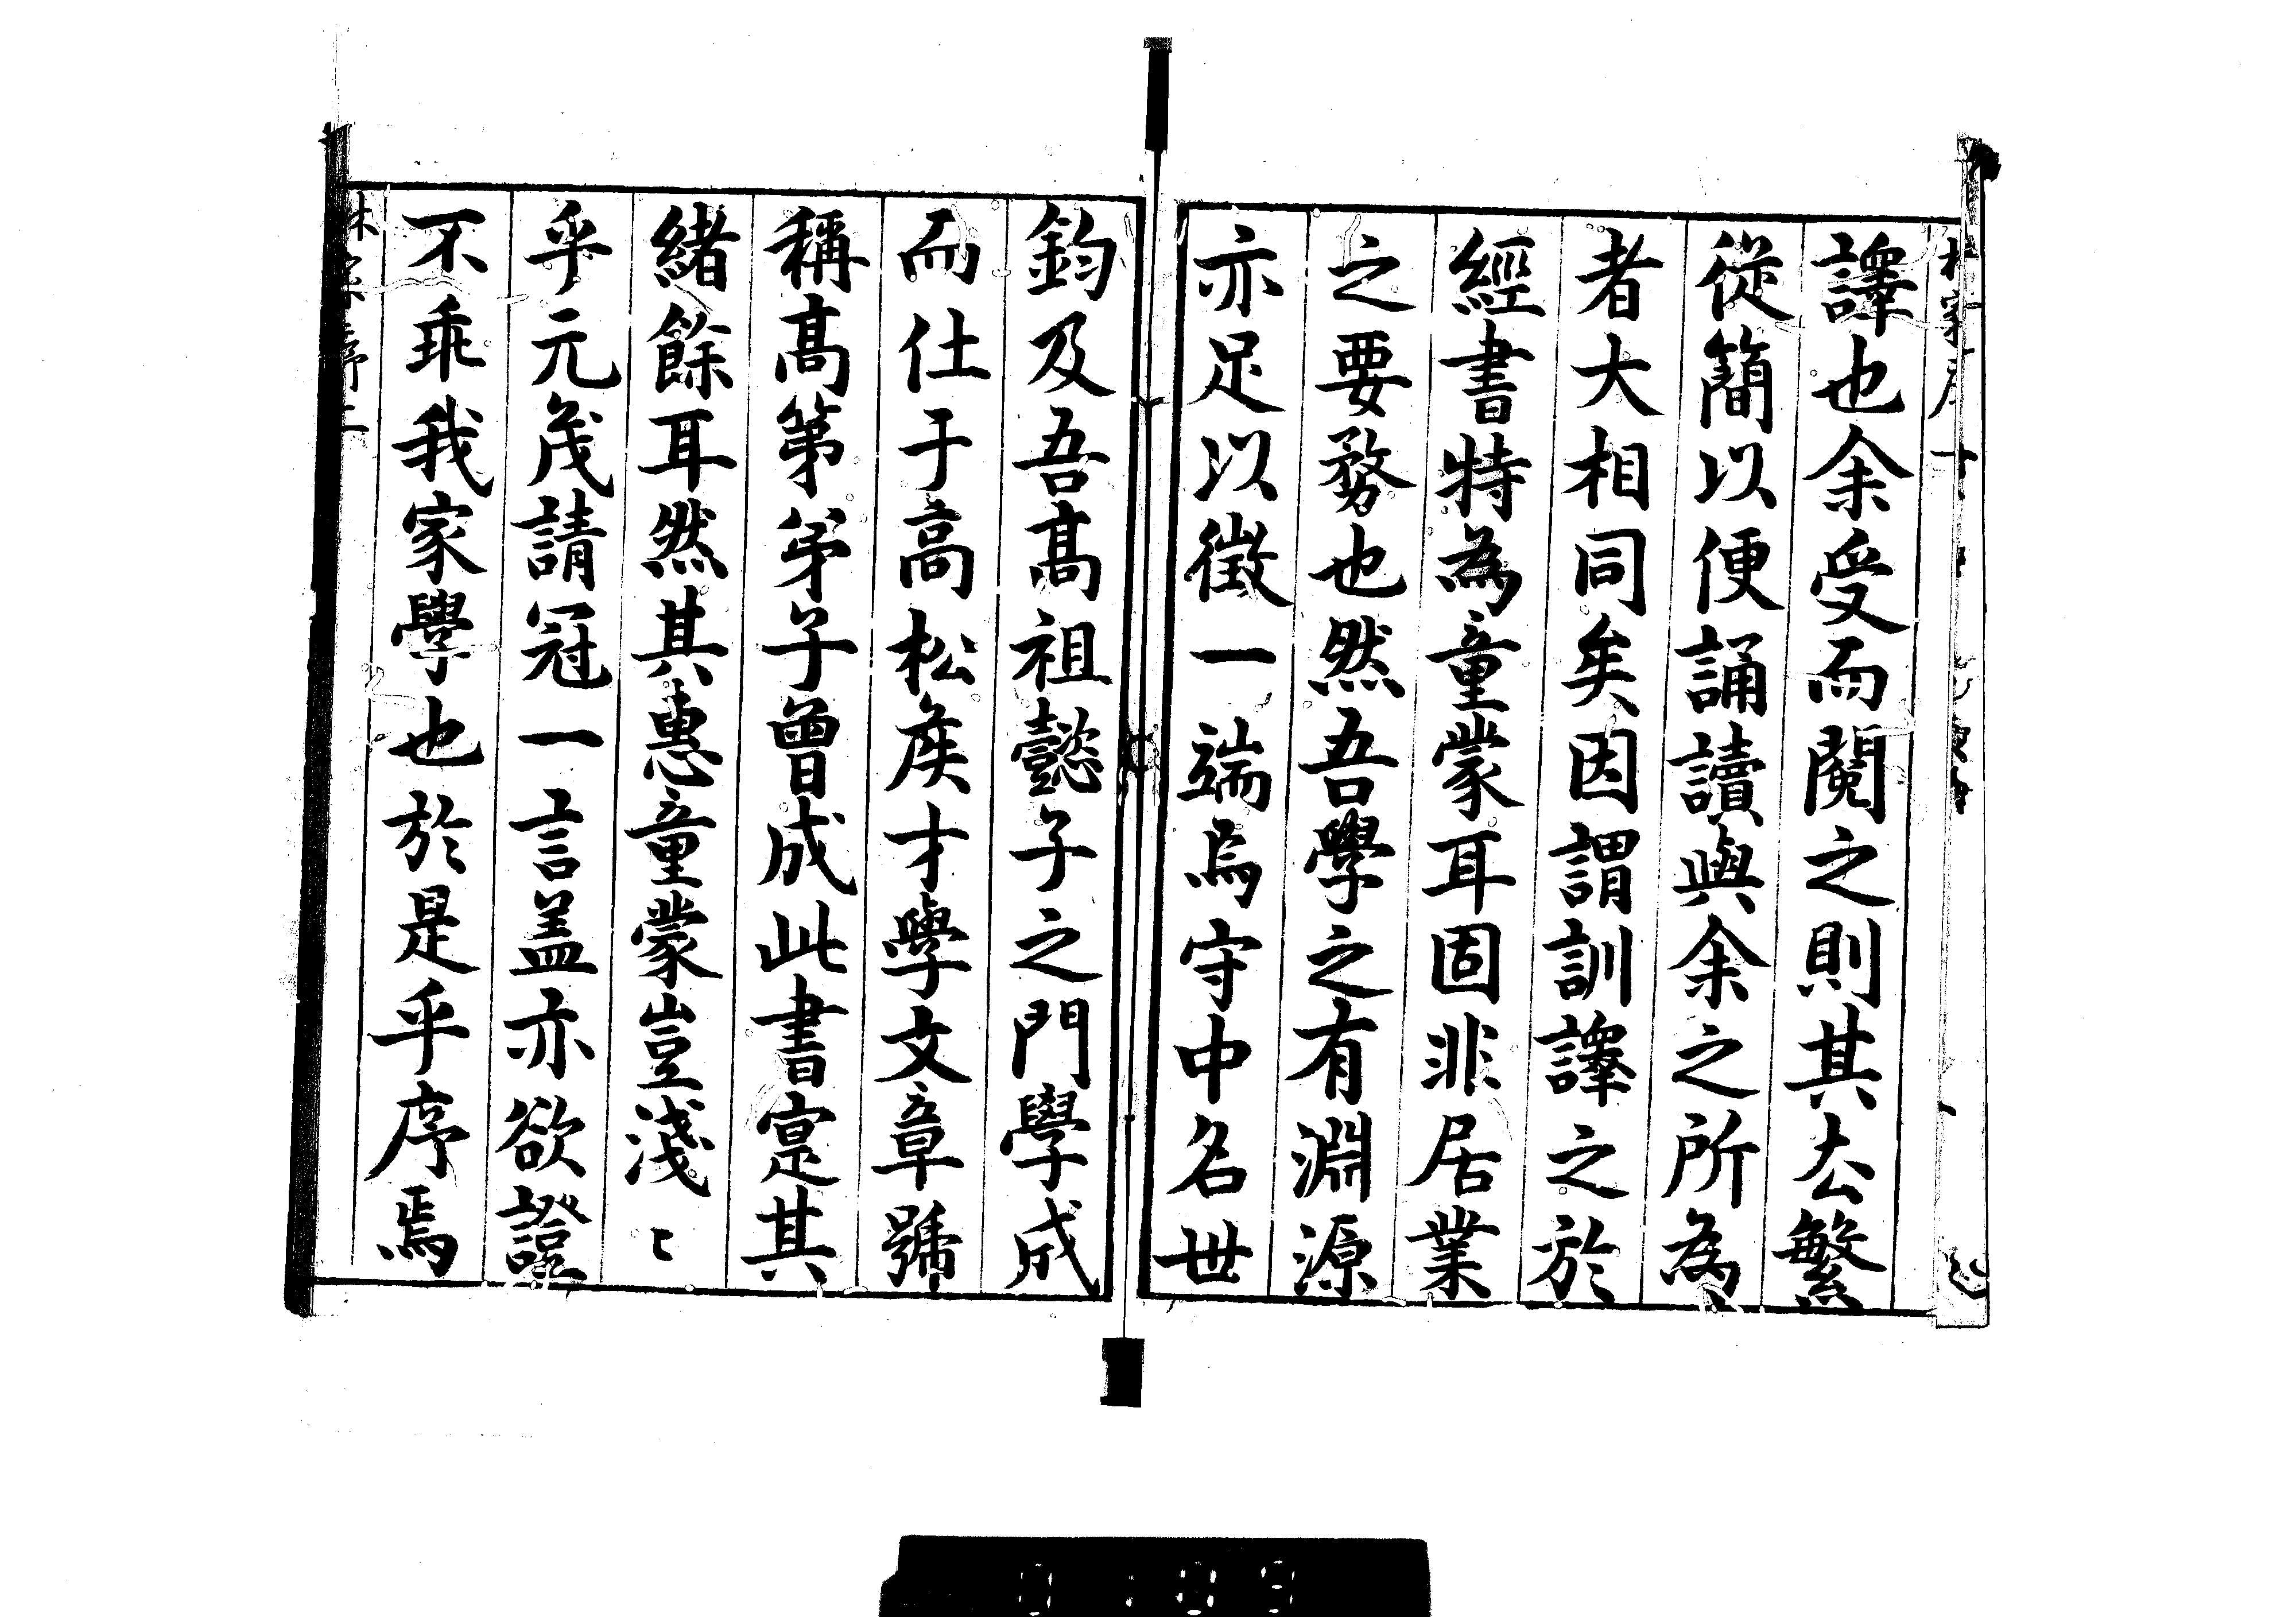 譯也余受而閱之則其厺繁
從簡以便誦讀與余之所為
者大相同矣因謂訓譯之於
經書特為童蒙耳固非居業
之要務也然吾學之有淵源
亦足以徵一端焉守中名世
鈞及吾髙祖懿子之門學成
而仕于高松矦才學文章號
稱髙第弟子曾成此書寔其
緒餘耳然其惠童蒙豈淺〻
乎元茂請冠一言盖亦欲證
不乖我家學也於是乎序焉